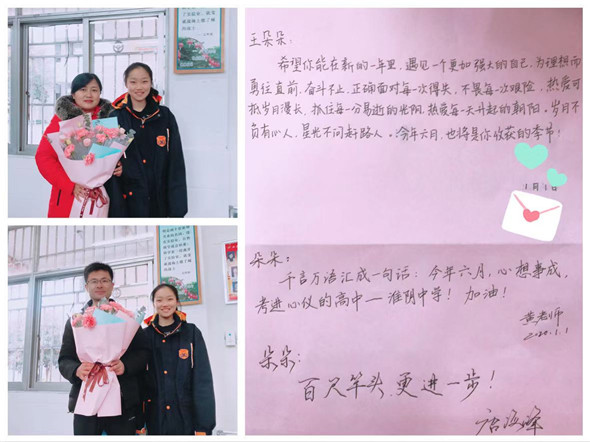 王朵朵：
希望你能在新的一年里，遇见一个更加强大的自己，为理想而
勇往直前，奋斗不止，正确面对每一次得失，不畏每一次艰险，热爱可
抵岁月漫长，抓住每一分易逝的光阴，热爱每一天升起的朝阳，岁月不
负有心人，星光不问赶路人。今年六月，也将是你收获的季节！
1月1日
朵朵：
千言万语汇成一句话：今年六月，心想事成，
考进心仪的高中一淮阴中学！加油！
黄老师
2020.1.1
朵朵：
百尺竿头，更进一步！